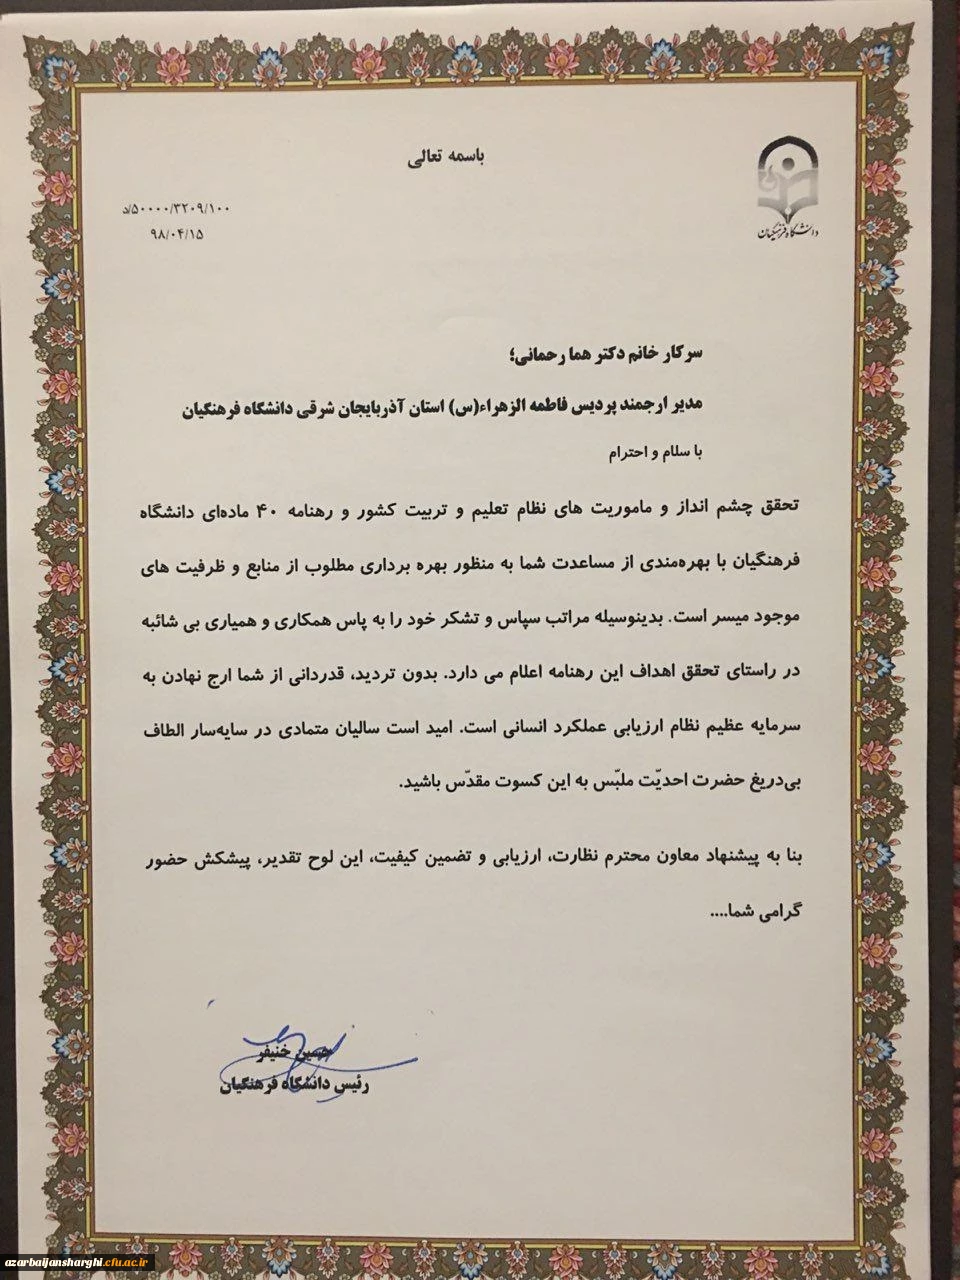 باسمه تعالی
دانشگاه فرهنگیان
۵۰۰۰۰/۳۲۰۹/۱۰۰/د
۹۸/۰۴/۱۵
سرکار خانم دکتر هما رحمانی؛
مدیر ارجمند پردیس فاطمه الزهراء(س) استان آذربایجان شرقی دانشگاه فرهنگیان
با سلام و احترام
تحقق چشم انداز و ماموریت های نظام تعلیم و تربیت کشور و رهنامه ۴۰ ماده‌ای دانشگاه
فرهنگیان با بهره‌مندی از مساعدت شما به منظور بهره برداری مطلوب از منابع و ظرفیت های
موجود میسر است. بدینوسیله مراتب سپاس و تشکر خود را به پاس همکاری و همیاری بی شائبه
در راستای تحقق اهداف این رهنامه اعلام می دارد. بدون تردید، قدردانی از شما ارج نهادن به
سرمایه عظیم نظام ارزیابی عملکرد انسانی است. امید است سالیان متمادی در سایه‌سار الطاف
بی‌دریغ حضرت احدیّت ملبّس به این کسوت مقدّس باشید.
بنا به پیشنهاد معاون محترم نظارت، ارزیابی و تضمین کیفیت، این لوح تقدیر، پیشکش حضور
گرامی شما....
حسین خنیفر
رئیس دانشگاه فرهنگیان
azarbaijansharghi.cfu.ac.ir